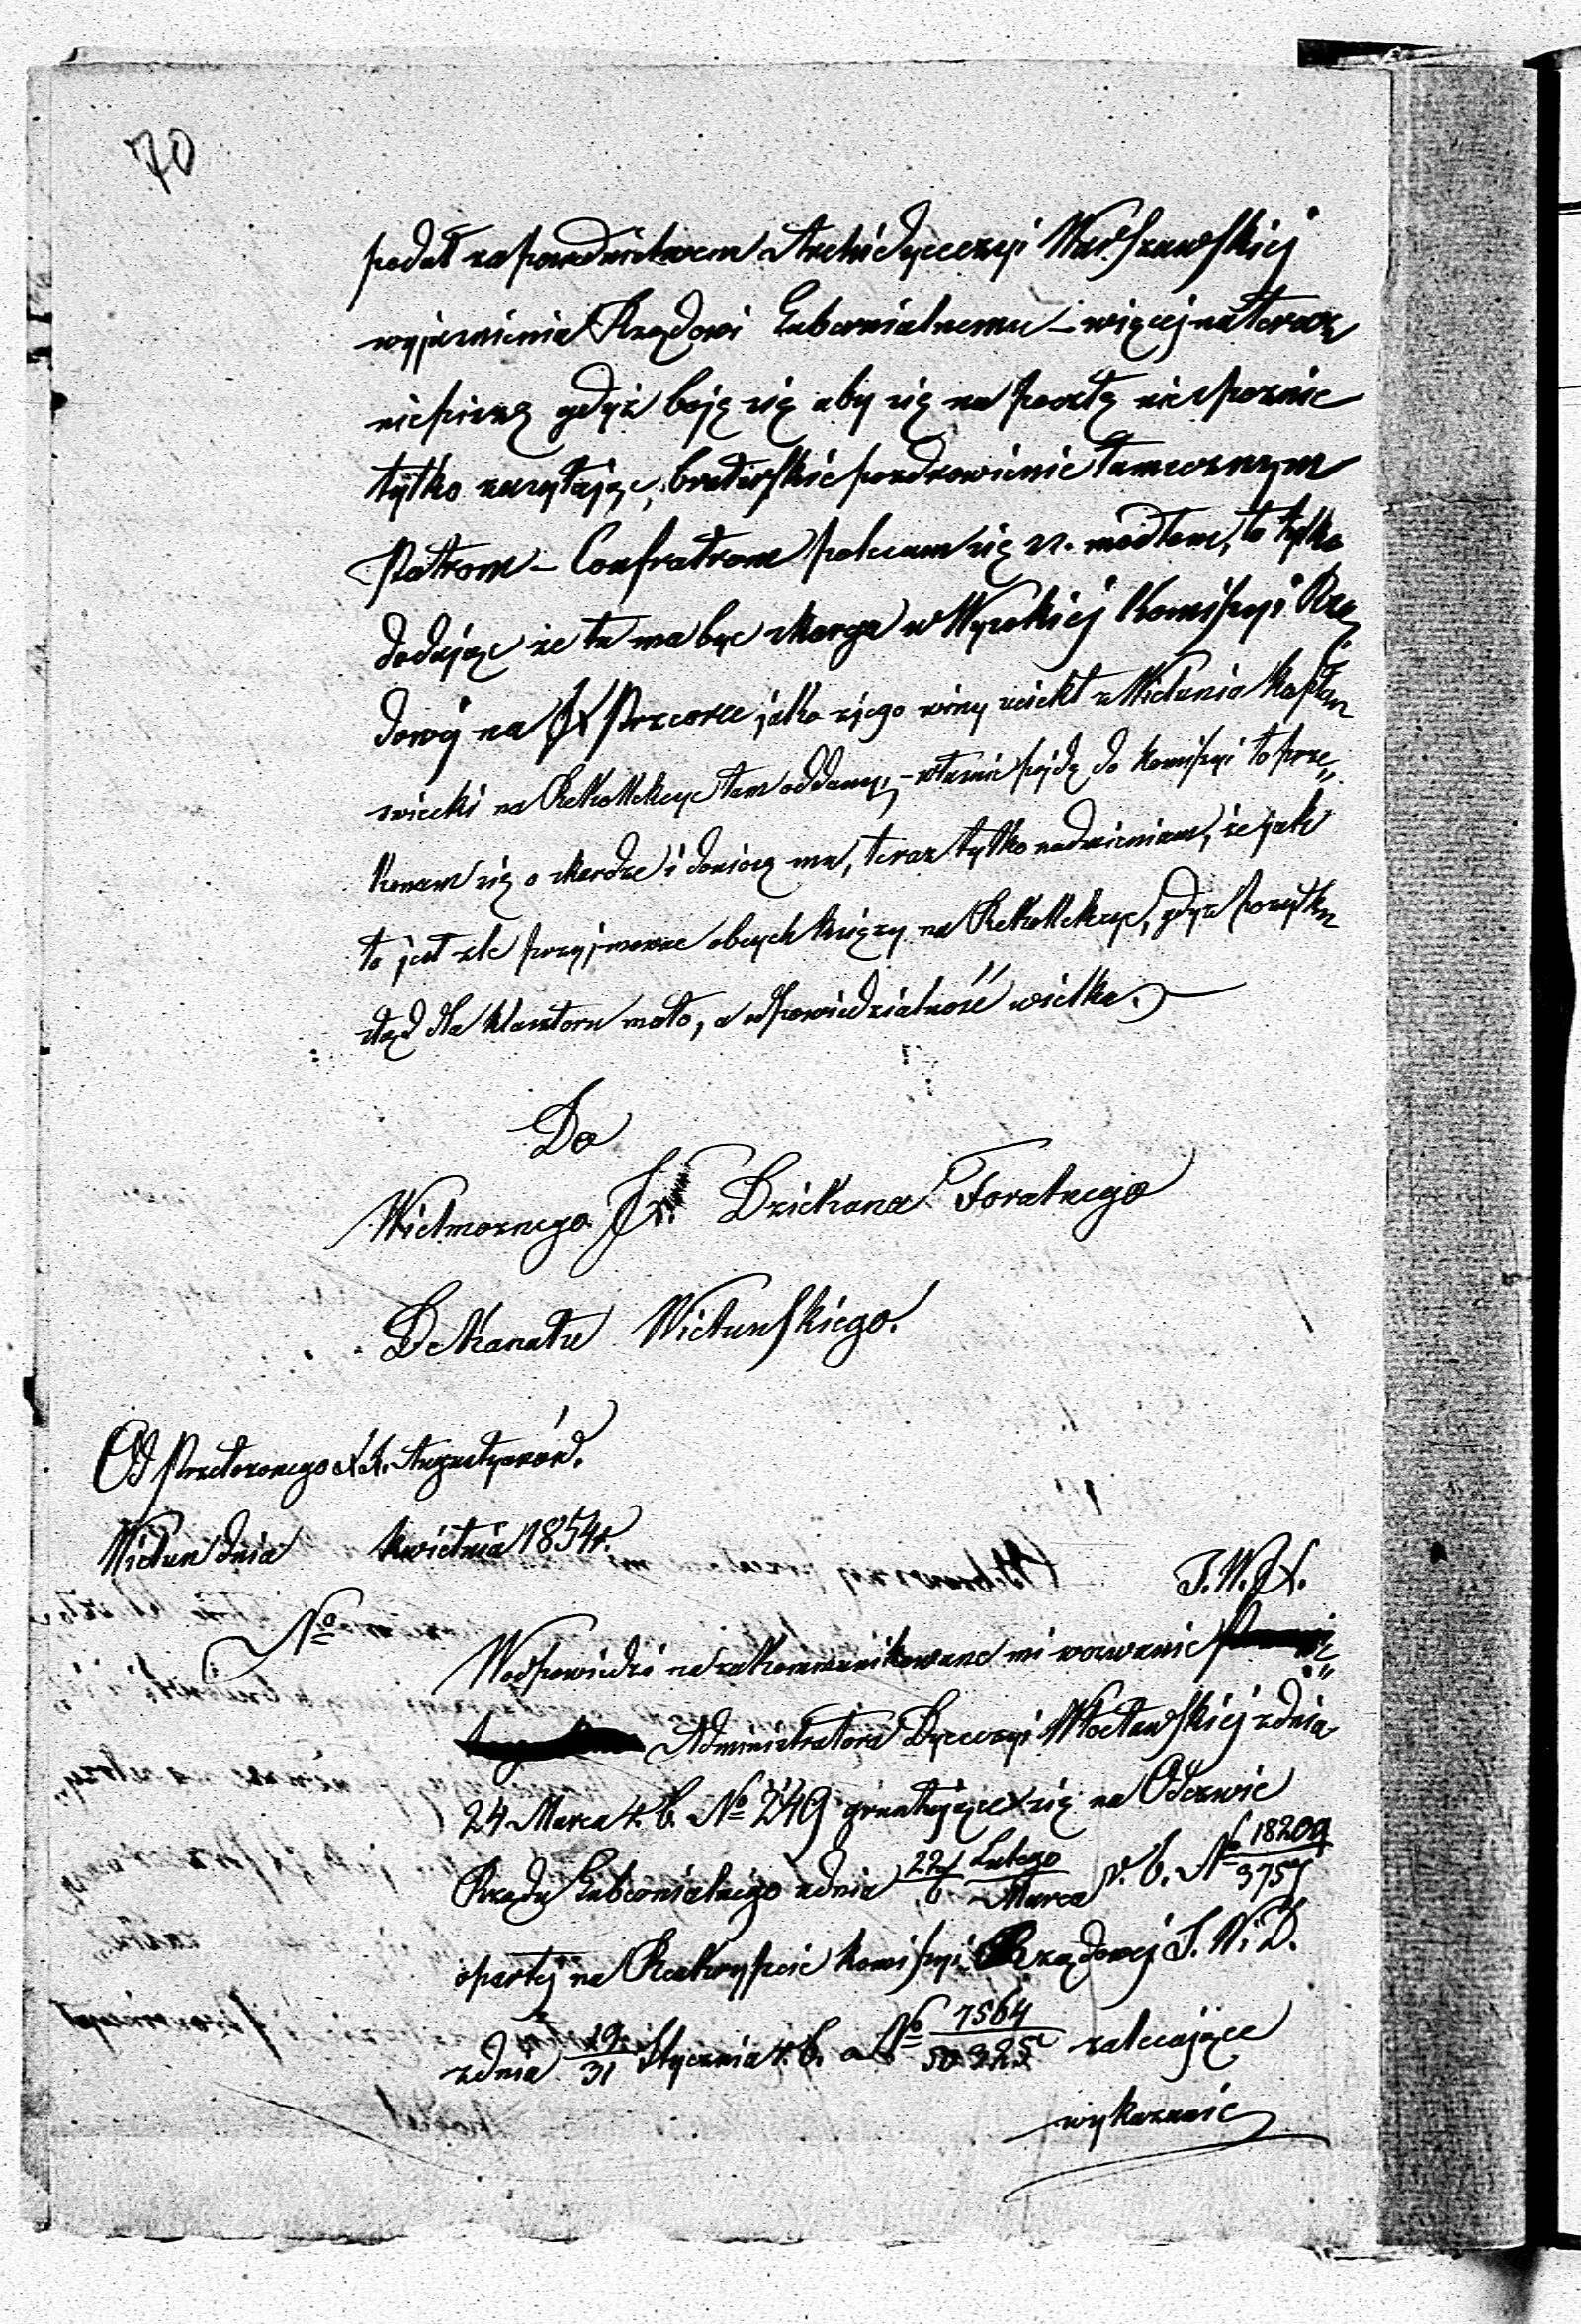 70
podał za pośrednictwem Archidyecezyi Warszawskiej
wyjasnienia Rządowi Gubernialnemu – więcej na teraz
niepiszę gdyż boję się aby się na pocztę nie spoznić
tylko zasyłając, braterskie pozdrowienie tamecznym
Patrom – Confratrom polecam się ss. modłom, to tylko
dodając że tu ma być skarga w Wysokiej Komissyi Rzą
dowej na JX Przeora jako z jego winy uciekł z Wielunia kapłan
swiecki na Rekollekcye tam oddany, – własnie pójdę do Komissyi to prze„
konam się o skardze i doniosę mu, teraz tylko nadmieniam, że jak
to jest zle przyjmować obcych księży na Rekollekcye, gdyż pożytku
ztąd dla klasztoru mało, a odpowiedzialność wielka.
Do
Wielmoznego JX. Dziekana Foralnego
Dekanatu Wieluńskiego.
Od Przełozonego XX. Augustyanów.
Wielun dnia kwietnia 1854 r.
No
J.W.JX.
W odpowiedzi na zakommunikowane mi wezwanie
Administratora Dyecezyi Włocławskiej z dnia
24 Marca r. b. No 249 gruntujące się na Odezwie
Rządu Gubernialnego z dnia 22/6 Lutego/Marca r. b. No 18209/3757
opartej na Reskrypcie Komissyi Rządowej S. W. i D.
z dnia 19/31 Stycznia r. b. a No 7564/50325 zalecające
wykazanie